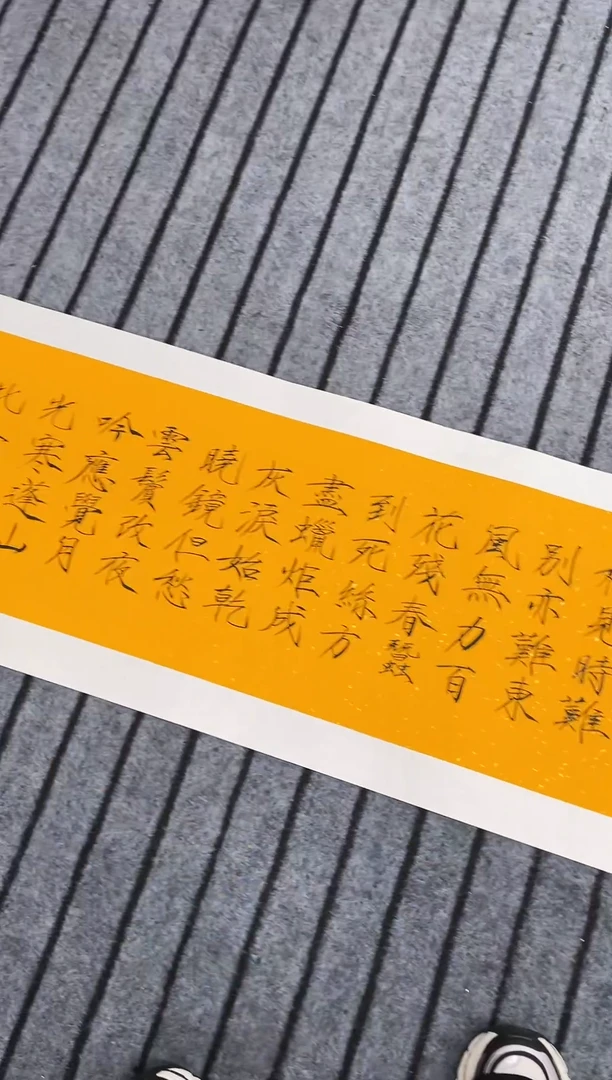 見時難
别亦難東
風無力百
花殘春蠶
到死絲方
盡蠟炬成
灰淚始乾
曉鏡但愁
雲鬢改夜
吟應覺月
光寒蓬山
此